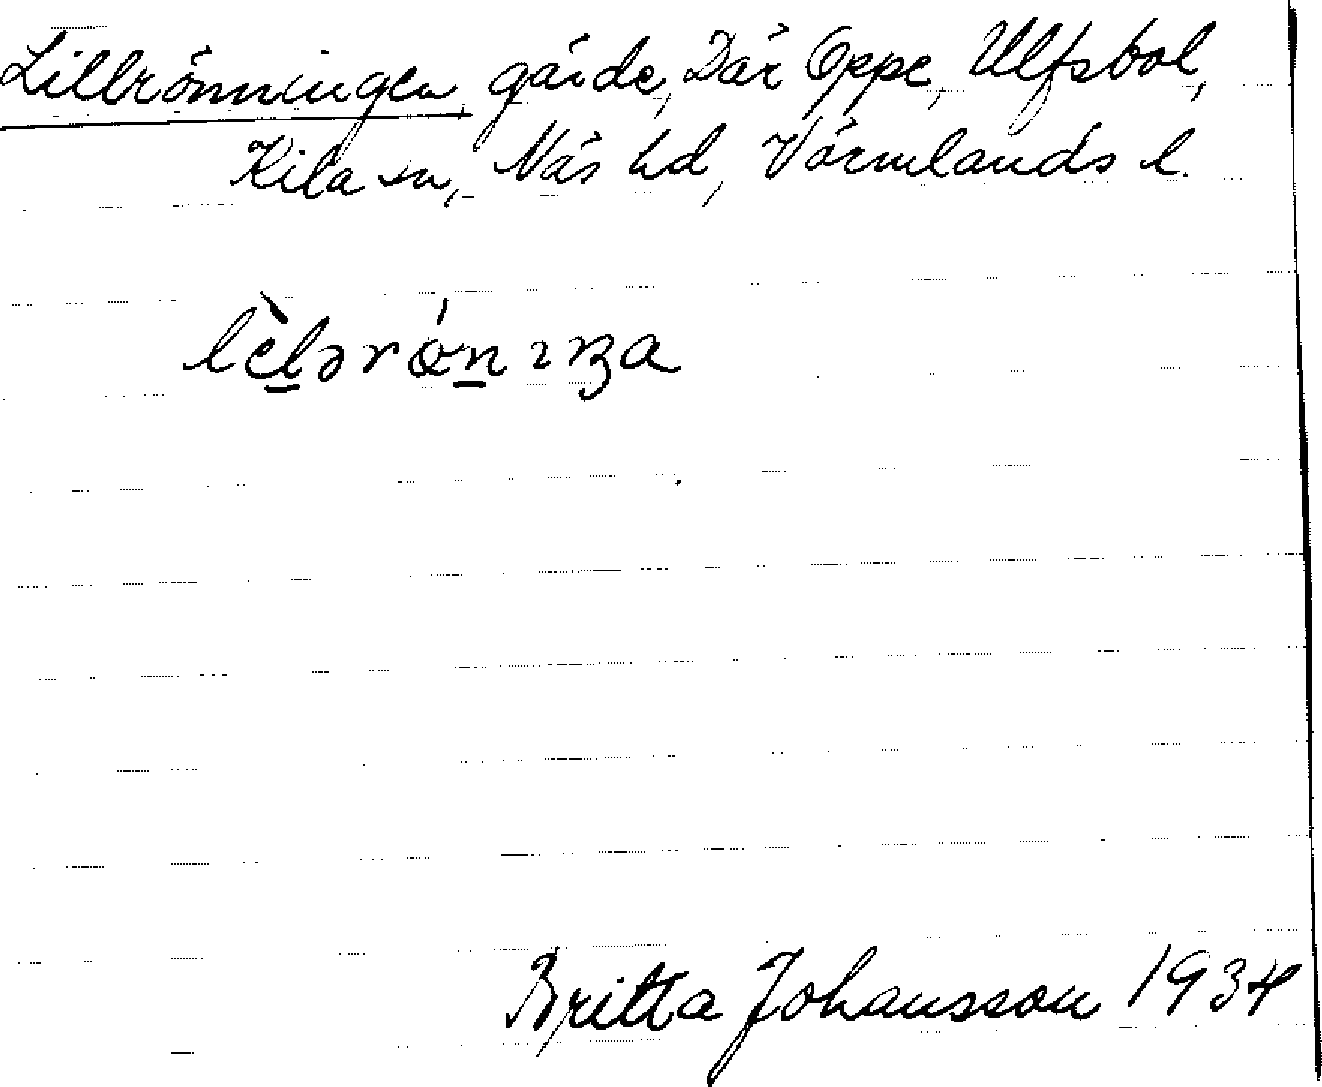 Lillrönningen, gärde, Där Oppe, Ulfsbol,
Kila sn, Näs hd, Värmlands l.
lèlərǿnıŋa
Britta Johansson 1934